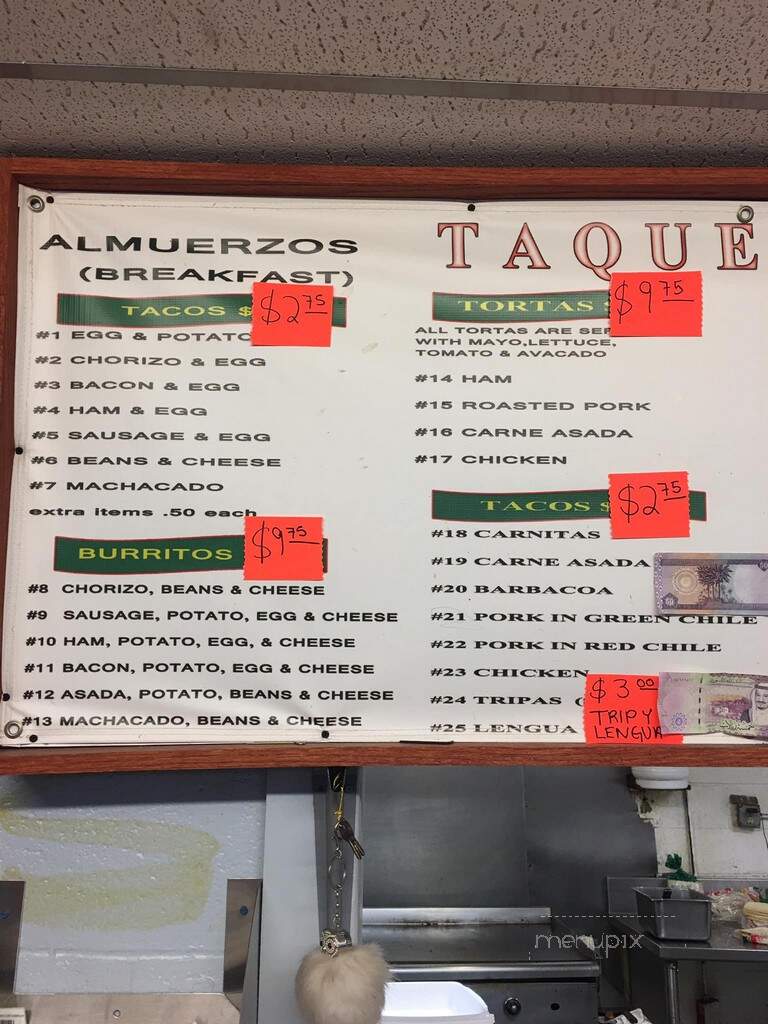 ALMUERZOS
(BREAKFAST)
TACOS $2.75
#1 EGG & POTATO
#2 CHORIZO & EGG
#3 BACON & EGG
#4 HAM & EGG
#5 SAUSAGE & EGG
#6 BEANS & CHEESE
#7 MACHACADO
extra items .50 each
BURRITOS $9.75
#8 CHORIZO, BEANS & CHEESE
#9 SAUSAGE, POTATO, EGG & CHEESE
#10 HAM, POTATO, EGG, & CHEESE
#11 BACON, POTATO, EGG & CHEESE
#12 ASADA, POTATO, BEANS & CHEESE
#13 MACHACADO, BEANS & CHEESE
TAQUE
TORTAS $9.75
ALL TORTAS ARE SER
WITH MAYO, LETTUCE,
TOMATO & AVACADO
#14 HAM
#15 ROASTED PORK
#16 CARNE ASADA
#17 CHICKEN
TACOS $2.75
#18 CARNITAS
#19 CARNE ASADA
#20 BARBACOA
#21 PORK IN GREEN CHILE
#22 PORK IN RED CHILE
#23 CHICKEN
#24 TRIPAS (
#25 LENGUA
$3.00
TRIP Y
LENGUA
menupix